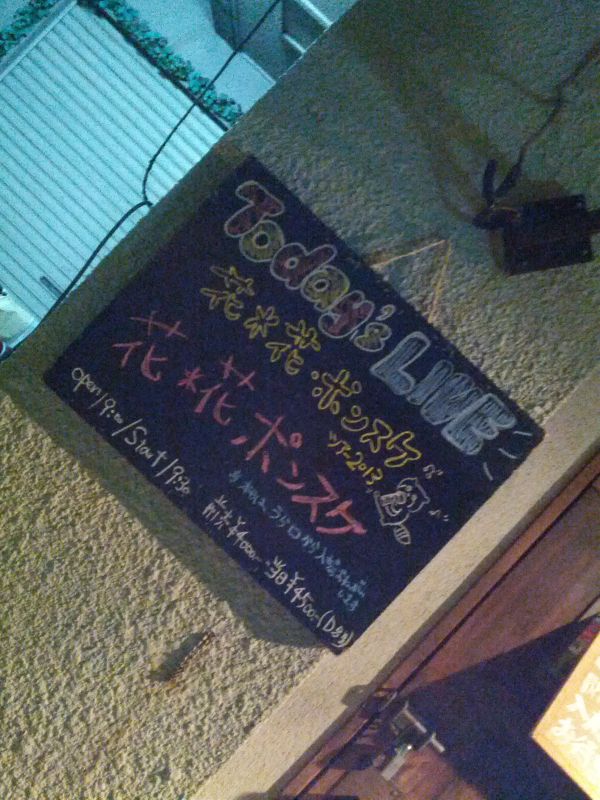 Today's LIVE
花*花 ポンスケ
ツアー2013
花*花、ポンスケ
open 19:00 / Start 19:30
前売¥4000 当日¥4500 (D別)